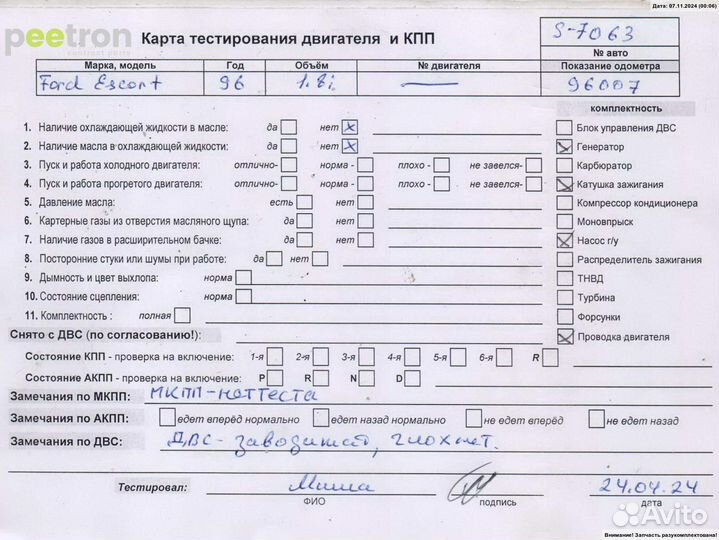 Дата: 07.11.2024 (00:06)
peetron
contract parts
Карта тестирования двигателя и КПП
S-7063
№ авто
Марка, модель Год Объём № двигателя Показание одометра
Ford Escort 96 1.8i — 96007
комплектность
1. Наличие охлаждающей жидкости в масле: да нет x
Блок управления ДВС
2. Наличие масла в охлаждающей жидкости: да нет x
Генератор
3. Пуск и работа холодного двигателя: отлично- норма - плохо - не завелся-
Карбюратор
4. Пуск и работа прогретого двигателя: отлично- норма - плохо - не завелся-
Катушка зажигания
5. Давление масла: есть нет
Компрессор кондиционера
6. Картерные газы из отверстия масляного щупа: да нет
Моновпрыск
7. Наличие газов в расширительном бачке: да нет
Насос г/у
8. Посторонние стуки или шумы при работе: да нет
Распределитель зажигания
9. Дымность и цвет выхлопа: норма
ТНВД
10. Состояние сцепления: норма
Турбина
11. Комплектность : полная
Форсунки
Снято с ДВС (по согласованию!):
Проводка двигателя
Состояние КПП - проверка на включение: 1-я 2-я 3-я 4-я 5-я 6-я R
Состояние АКПП - проверка на включение: P R N D
Замечания по МКПП: МКПП-нет теста
Замечания по АКПП: едет вперёд нормально едет назад нормально не едет вперёд не едет назад
Замечания по ДВС: ДВС-заводится, глохнет.
Тестировал: Миша 24.04.24
ФИО подпись дата
Avito
Внимание! Запчасть разукомплектована!